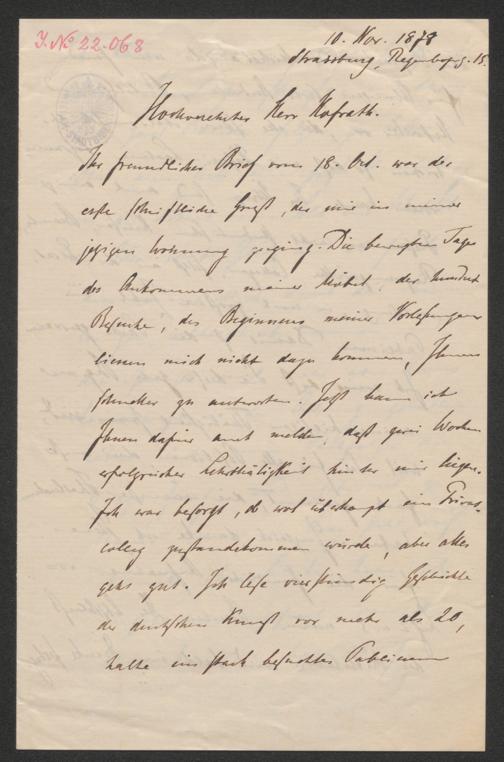 J. No 22.068
10. Nov. 1878
Strassburg, 15.
Hochverehrter Herr Hofrath.
Ihr freundlicher Brief vom 18. Oct. war der
erste schriftliche Gruß, der mir in meiner
jetzigen Wohnung zuging. Die bewegten Tage
des Ankommens meiner Möbel, der hundert
Besuche, des Beginnens meiner Vorlesungen
liessen mich nicht dazu kommen, Ihnen
schneller zu antworten. Jetzt kann ich
Ihnen dafür auch melden, daß zwei Wochen
erfolgreicher Lehrthätigkeit hinter mir liegen.
Ich war besorgt, ob wol überhaupt ein Privat-
colleg zustandekommen würde, aber alles
geht gut. Ich lese vierstündig Geschichte
der deutschen Kunst vor mehr als 20,
halte ein stark besuchtes Publicum